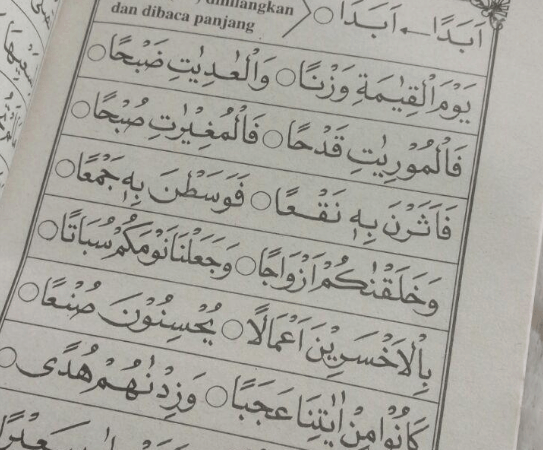 dihilangkan
dan dibaca panjang
اَبَدًا ← اَبَدَا ○
يَوْمَ الْقِيٰمَةِ وَزْنًا ○ وَالْعٰدِيٰتِ ضَبْحًا ○
فَالْمُوْرِيٰتِ قَدْحًا ○ فَالْمُغِيْرٰتِ صُبْحًا ○
فَاَثَرْنَ بِهٖ نَقْعًا ○ فَوَسَطْنَ بِهٖ جَمْعًا ○
وَخَلَقْنٰكُمْ اَزْوَاجًا ○ وَجَعَلْنَا نَوْمَكُمْ سُبَاتًا ○
بِالْاَخْسَرِيْنَ اَعْمَالًا ○ يُحْسِنُوْنَ صُنْعًا ○
كَانُوْا مِنْ اٰيٰتِنَا عَجَبًا ○ وَزِدْنٰهُمْ هُدًى ○